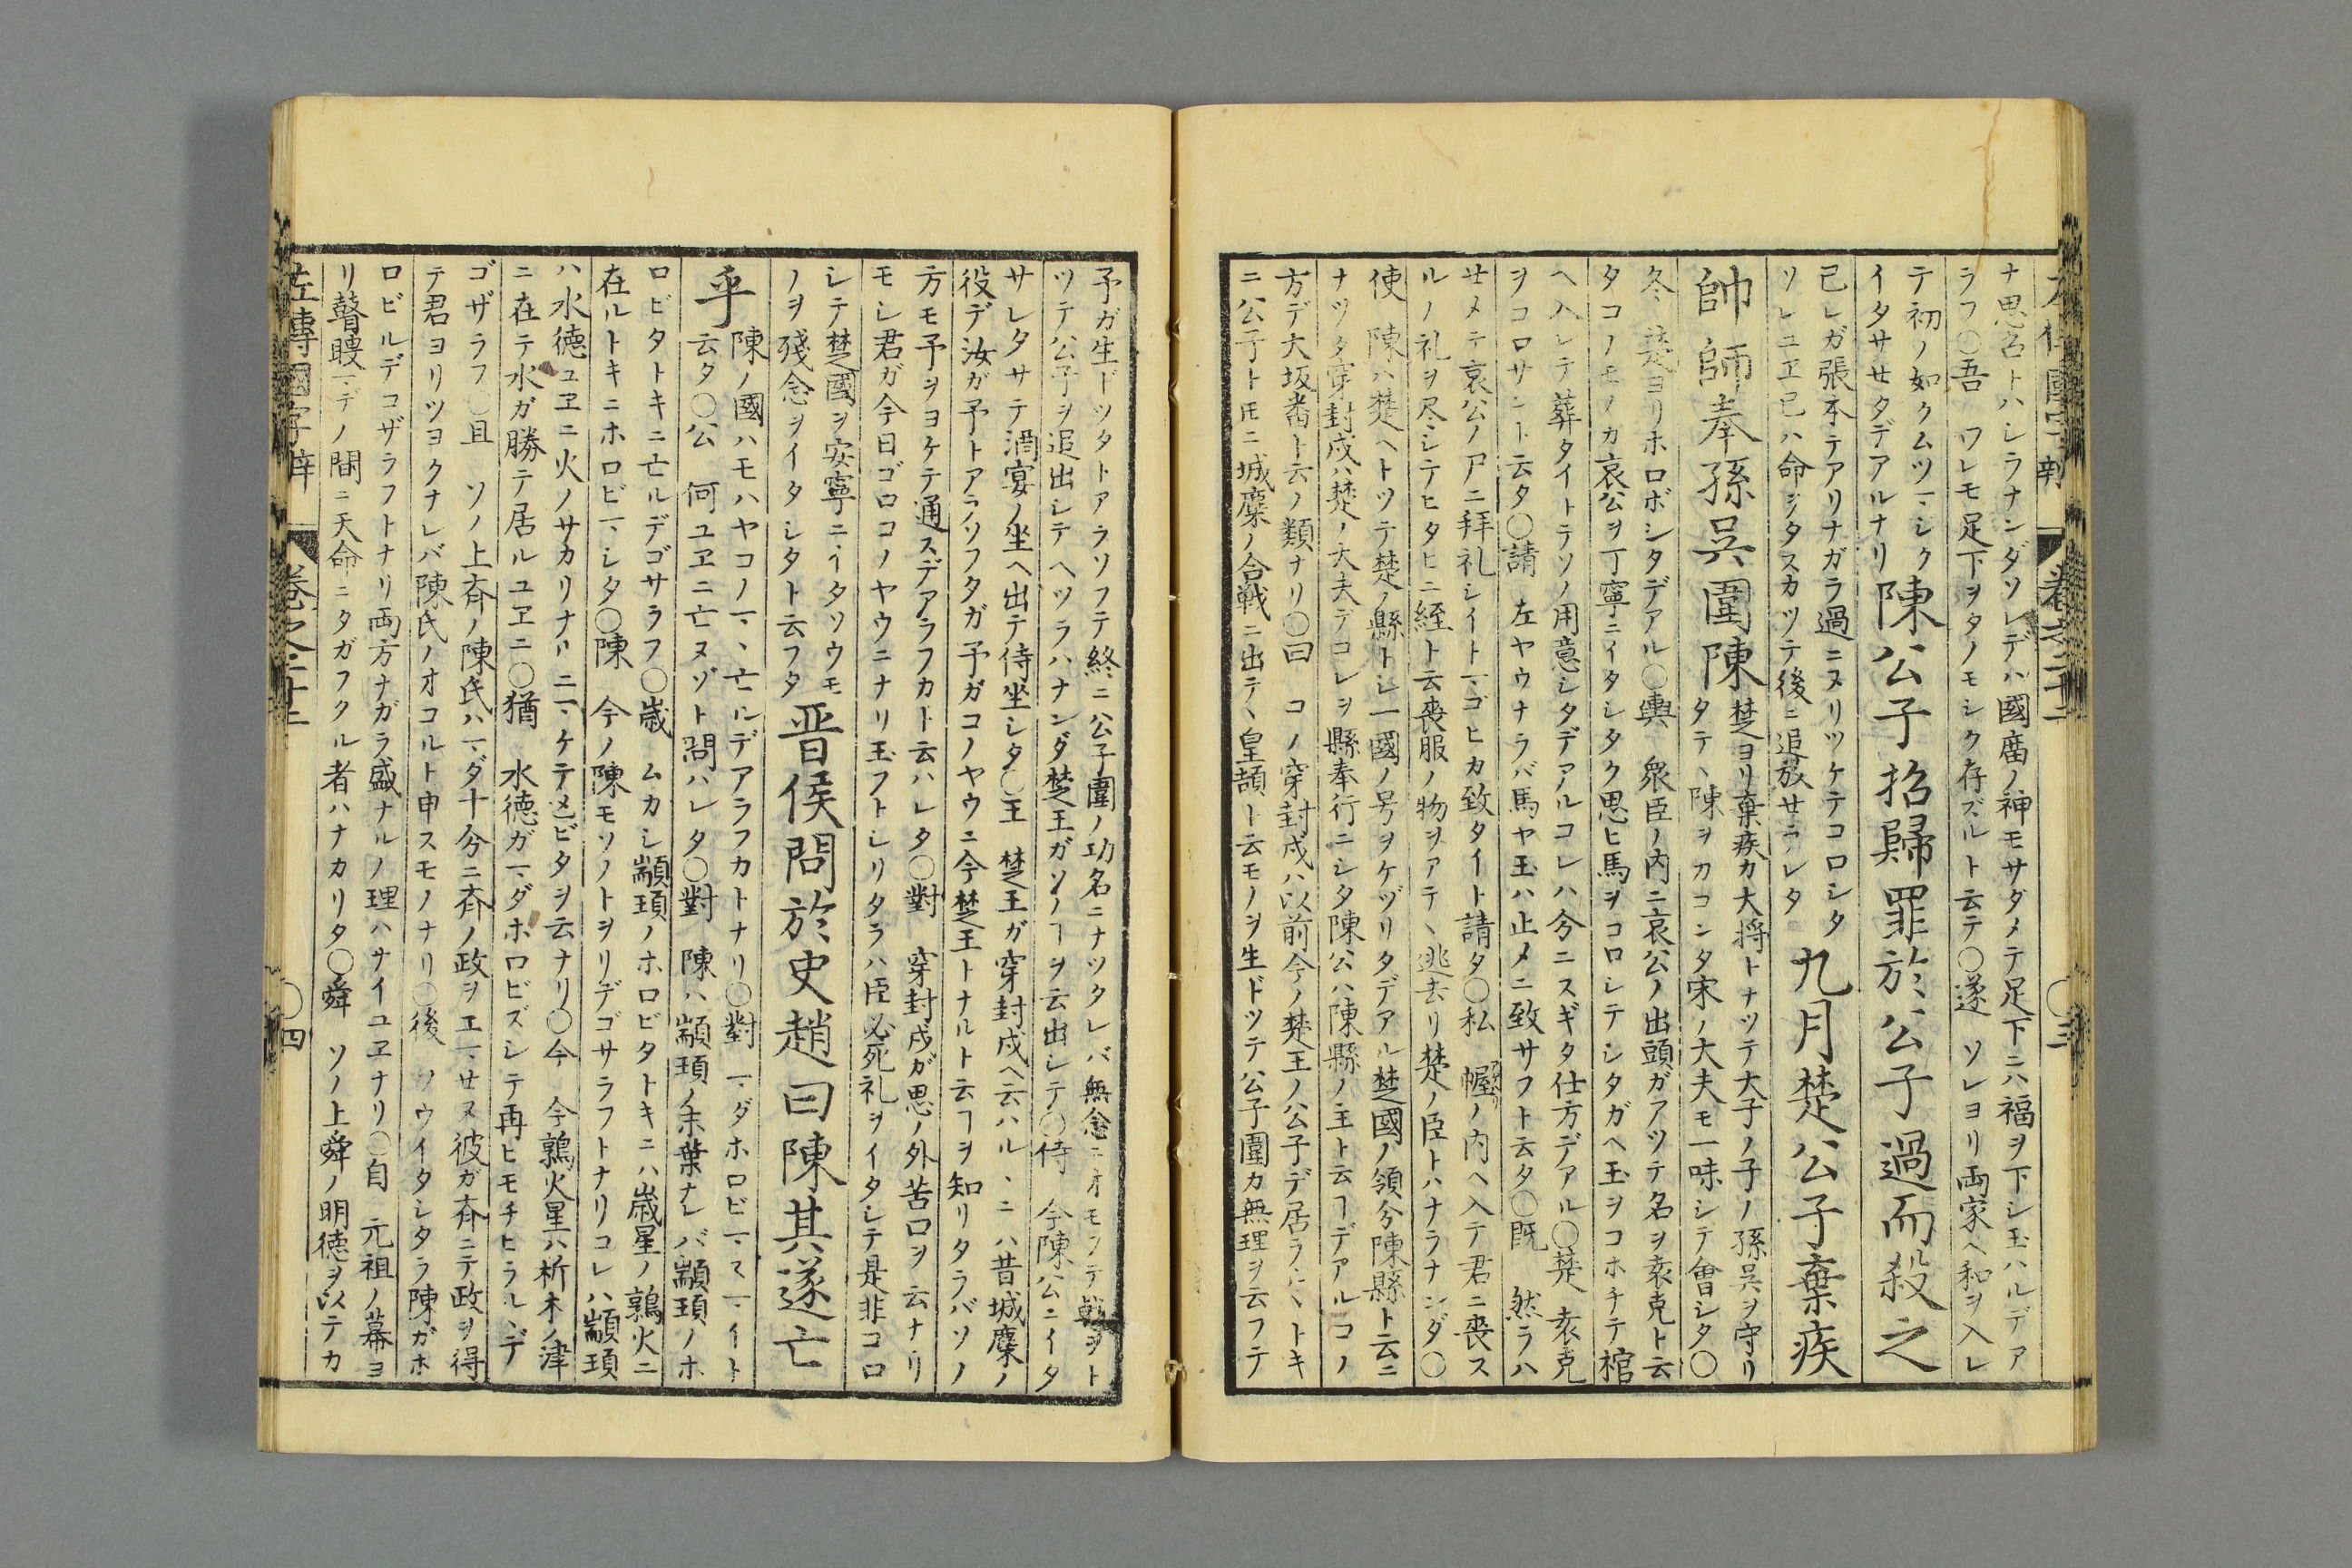 ナ思召トハシラナンダソレデハ國廟ノ神モサダメテ足下ニハ福ヲ下シ玉ハルデア
ラフ〇吾　ワレモ足下ヲタノモシク存ズルト云テ〇遂　ソレヨリ両家ヘ和ヲ入レ
テ初ノ如クムツマシク
イタサセタデアルナリ
陳公子招歸罪於公子過而殺之
己レガ張本テアリナガラ過ニヌリツケテコロシタ
ソレユヱ己ハ命ヲタスカツテ後ニ追放セラレタ
九月楚公子棄疾
帥師奉孫呉圍陳
楚ヨリ棄疾カ大将トナツテ大子ノ子ノ孫呉ヲ守リ
タテヽ陳ヲカコンタ宋ノ大夫モ一味シテ會シタ〇
冬　楚ヨリホロボシタデアル〇輿　衆臣ノ内ニ哀公ノ出頭ガアツテ名ヲ袁克ト云
タコノモノカ哀公ヲ丁寧ニイタシタク思ヒ馬ヲコロシテシタガヘ玉ヲコホチテ棺
ヘ入レテ葬タイトテソノ用意シタデアルコレハ今ニスギタ仕方デアル〇楚　袁克
ヲコロサント云タ〇請　左ヤウナラバ馬ヤ玉ハ止メニ致サフト云タ〇既　然ラハ
セメテ哀公ノ尸ニ拜礼シイトマゴヒカ致タイト請タ〇私　幄ノ内ヘ入テ君ニ喪ス
ルノ礼ヲ尽シテヒタヒニ絰ト云喪服ノ物ヲアテヽ逃去リ楚ノ臣トハナラナンダ〇
使　陳ハ楚ヘトツテ楚ノ縣トシ一國ノ号ヲケヅリタデアル楚國ノ領分陳縣ト云ニ
ナツタ穿封戌ハ楚ノ大夫デコレヲ縣奉行ニシタ陳公ハ陳縣ノ主ト云ヿデアルコノ
方デ大坂番ト云ノ類ナリ〇曰　コノ穿封戌ハ以前今ノ楚王ノ公子デ居ラルヽトキ
ニ公子トモニ城麇ノ合戦ニ出テヽ皇頡ト云モノヲ生ドツテ公子圍カ無理ヲ云フテ
卷之二十二
〇三
予ガ生ドツタトアラソフテ終ニ公子圍ノ功名ニナツタレバ無念ニオモフテ戟ヲト
ツテ公子ヲ追出シテヘツラハナンダ楚王ガソノヿヲ云出シテ〇侍　今陳公ニイタ
サレタサテ酒宴ノ坐ヘ出テ侍坐シタ〇王　楚王ガ穿封戌ヘ云ハルヽニハ昔城麇ノ
役デ汝ガ予トアラソフタガ予ガコノヤウニ今楚王トナルト云ヿヲ知リタラバソノ
方モ予ヲヨケテ通スデアラフカト云ハレタ〇對　穿封戌ガ思ノ外苦口ヲ云ナリ
モシ君ガ今日ゴロコノヤウニナリ玉フトシリタラハ臣必死礼ヲイタシテ是非コロ
シテ楚國ヲ安寧ニイタソウモ
ノヲ殘念ヲイタシタト云フタ
晋侯問於史趙曰陳其遂亡
乎
陳ノ國ハモハヤコノマヽ亡ルデアラフカトナリ〇對　マダホロビマスマイト
云タ〇公　何ユヱニ亡ヌゾト問ハレタ〇對　陳ハ顓頊ノ末葉ナレバ顓頊ノホ
ロビタトキニ亡ルデゴサラフ〇歳　ムカシ顓頊ノホロビタトキニハ歳星ノ鶉火ニ
在ルトキニホロビマシタ〇陳　今ノ陳モソノトヲリデゴサラフトナリコレハ顓頊
ハ水徳ユヱニ火ノサカリナルニマケテ亡ビタヲ云ナリ〇今　今鶉火星ハ析木ノ津
ニ在テ水ガ勝テ居ルユヱニ〇猶　水徳ガマダホロビズシテ再ヒモチヒラルヽデ
ゴザラフ〇且　ソノ上斉ノ陳氏ハマダ十分ニ斉ノ政ヲヱマセヌ彼ガ斉ニテ政ヲ得
テ君ヨリツヨクナレバ陳氏ノオコルト申スモノナリ〇後　ソウイタシタラ陳ガホ
ロビルデコザラフトナリ両方ナガラ盛ナルノ理ハナイユヱナリ〇自　元祖ノ幕ヨ
リ瞽瞍マデノ間ニ天命ニタガフタル者ハナカリタ〇舜　ソノ上舜ノ明徳ヲ以テカ
左傳國字辯
卷之二十二
〇四